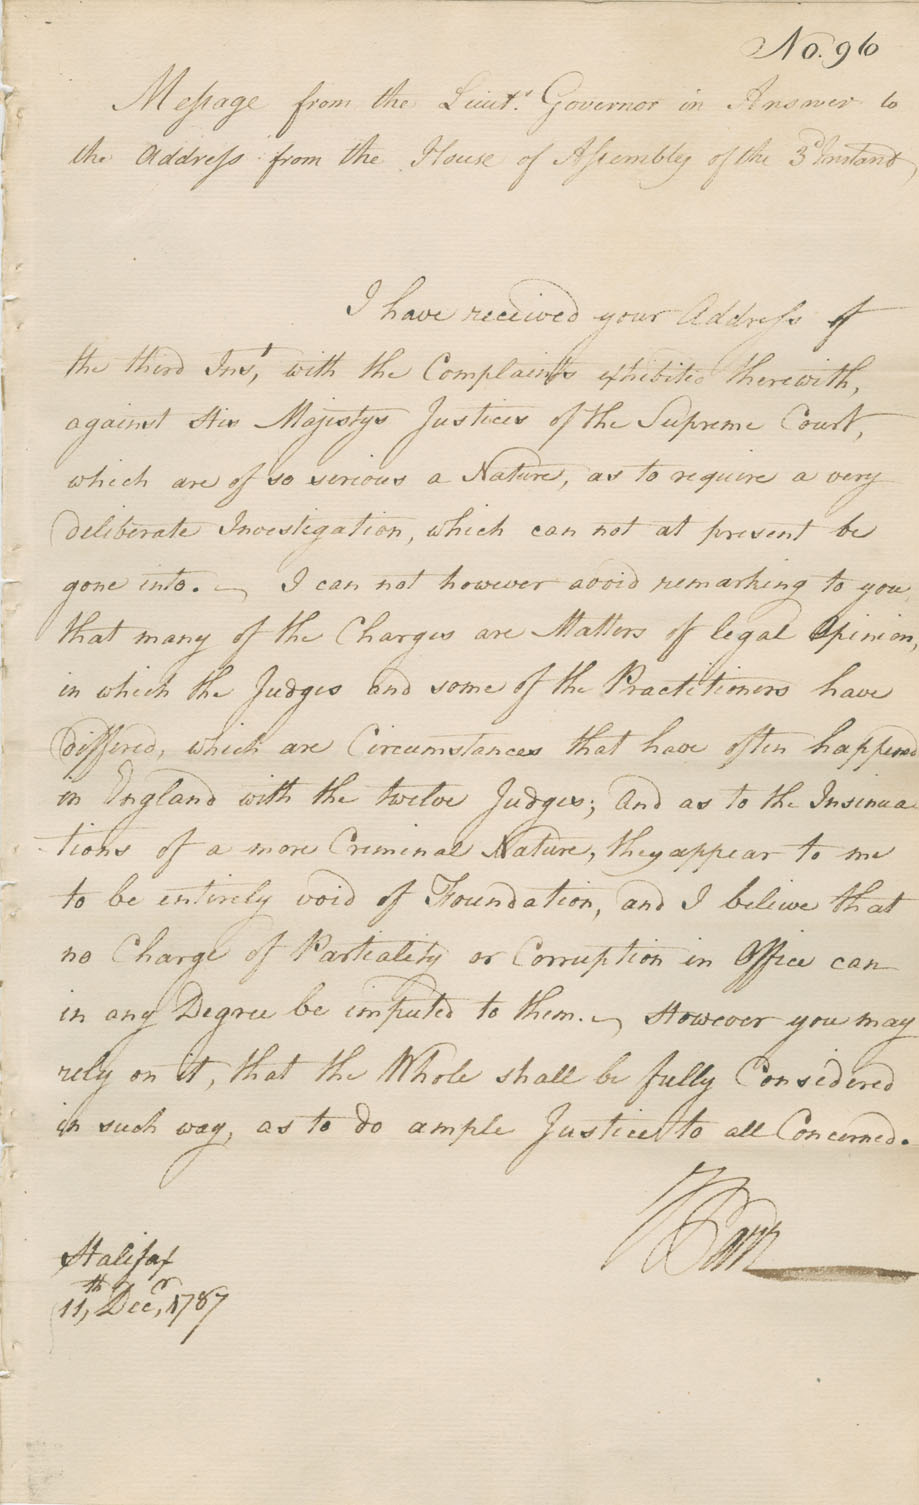 No. 96
Message from the Lieut.t Governor in Answer to
the Address from the House of Assembly of the 3d Instant,
I have received your Address of
the third Inst, with the Complaints exhibited therewith,
against His Majestys Justices of the Supreme Court,
which are of so serious a Nature, as to require a very
deliberate Investigation, which can not at present be
gone into. — I can not however avoid remarking to you,
that many of the Charges are Matters of legal Opinion,
in which the Judges and some of the Practitioners have
differed, which are Circumstances that have often happened
in England with the twelve Judges; And as to the Insinua
-tions of a more Criminal Nature, they appear to me
to be entirely void of Foundation, and I believe that
no Charge of Partiality or Corruption in Office can
in any Degree be imputed to them. — However you may
rely on it, that the Whole shall be fully Considered
in such way, as to do ample Justice to all Concerned.
J Parr
Halifax
11th, Decr, 1787